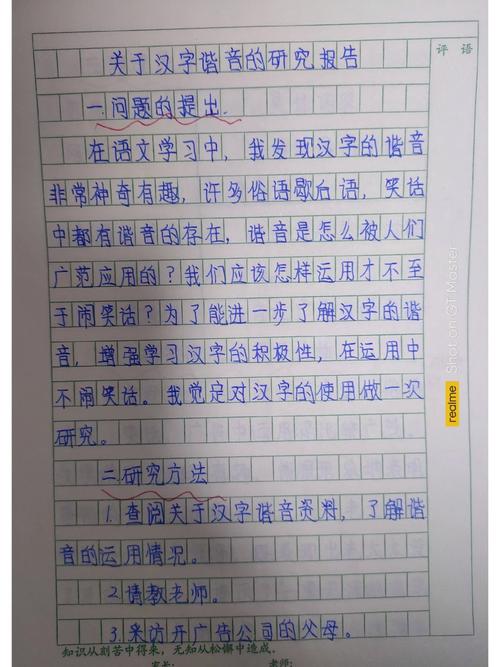 评 语
关于汉字谐音的研究报告
一.问题的提出.
在语文学习中，我发现汉字的谐音
非常神奇有趣，许多俗语歇后语，笑话
中都有谐音的存在，谐音是怎么被人们
广范应用的？我们应该怎样运用才不至
于闹笑话？为了能进一步了解汉字的谐
音，增强学习汉字的积极性，在运用中
不闹笑话。我觉定对汉字的使用做一次
研究。
二.研究方法
1.查阅关于汉字谐音资料，了解谐
音的运用情况。
2.请教老师。
3.采访开广告公司的父母。
知识从刻苦中得来，无知从松懈中造成。
家长： 老师：
realme Shot on GT Master